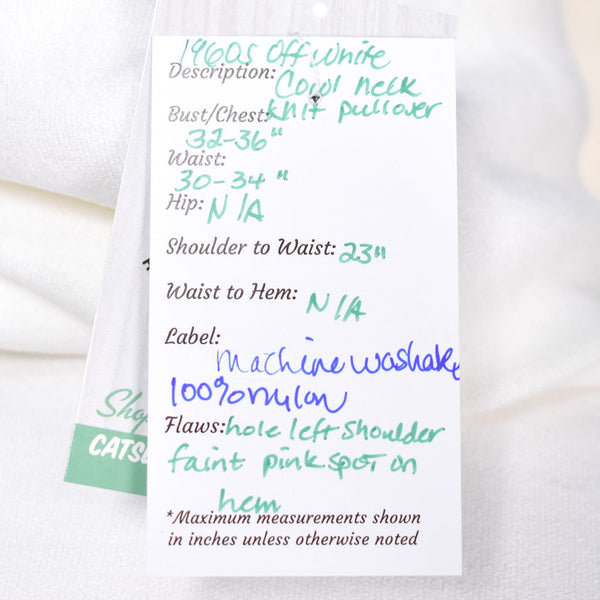 1960s Off white
Description: Cowl neck
Bust/Chest: knit pullover
32-36"
Waist:
30-34"
Hip: N/A
Shoulder to Waist: 23"
Waist to Hem: N/A
Label:
machine washable
100% nylon
Flaws: hole left shoulder
faint pink spot on
hem
*Maximum measurements shown
in inches unless otherwise noted
Shop
CATS